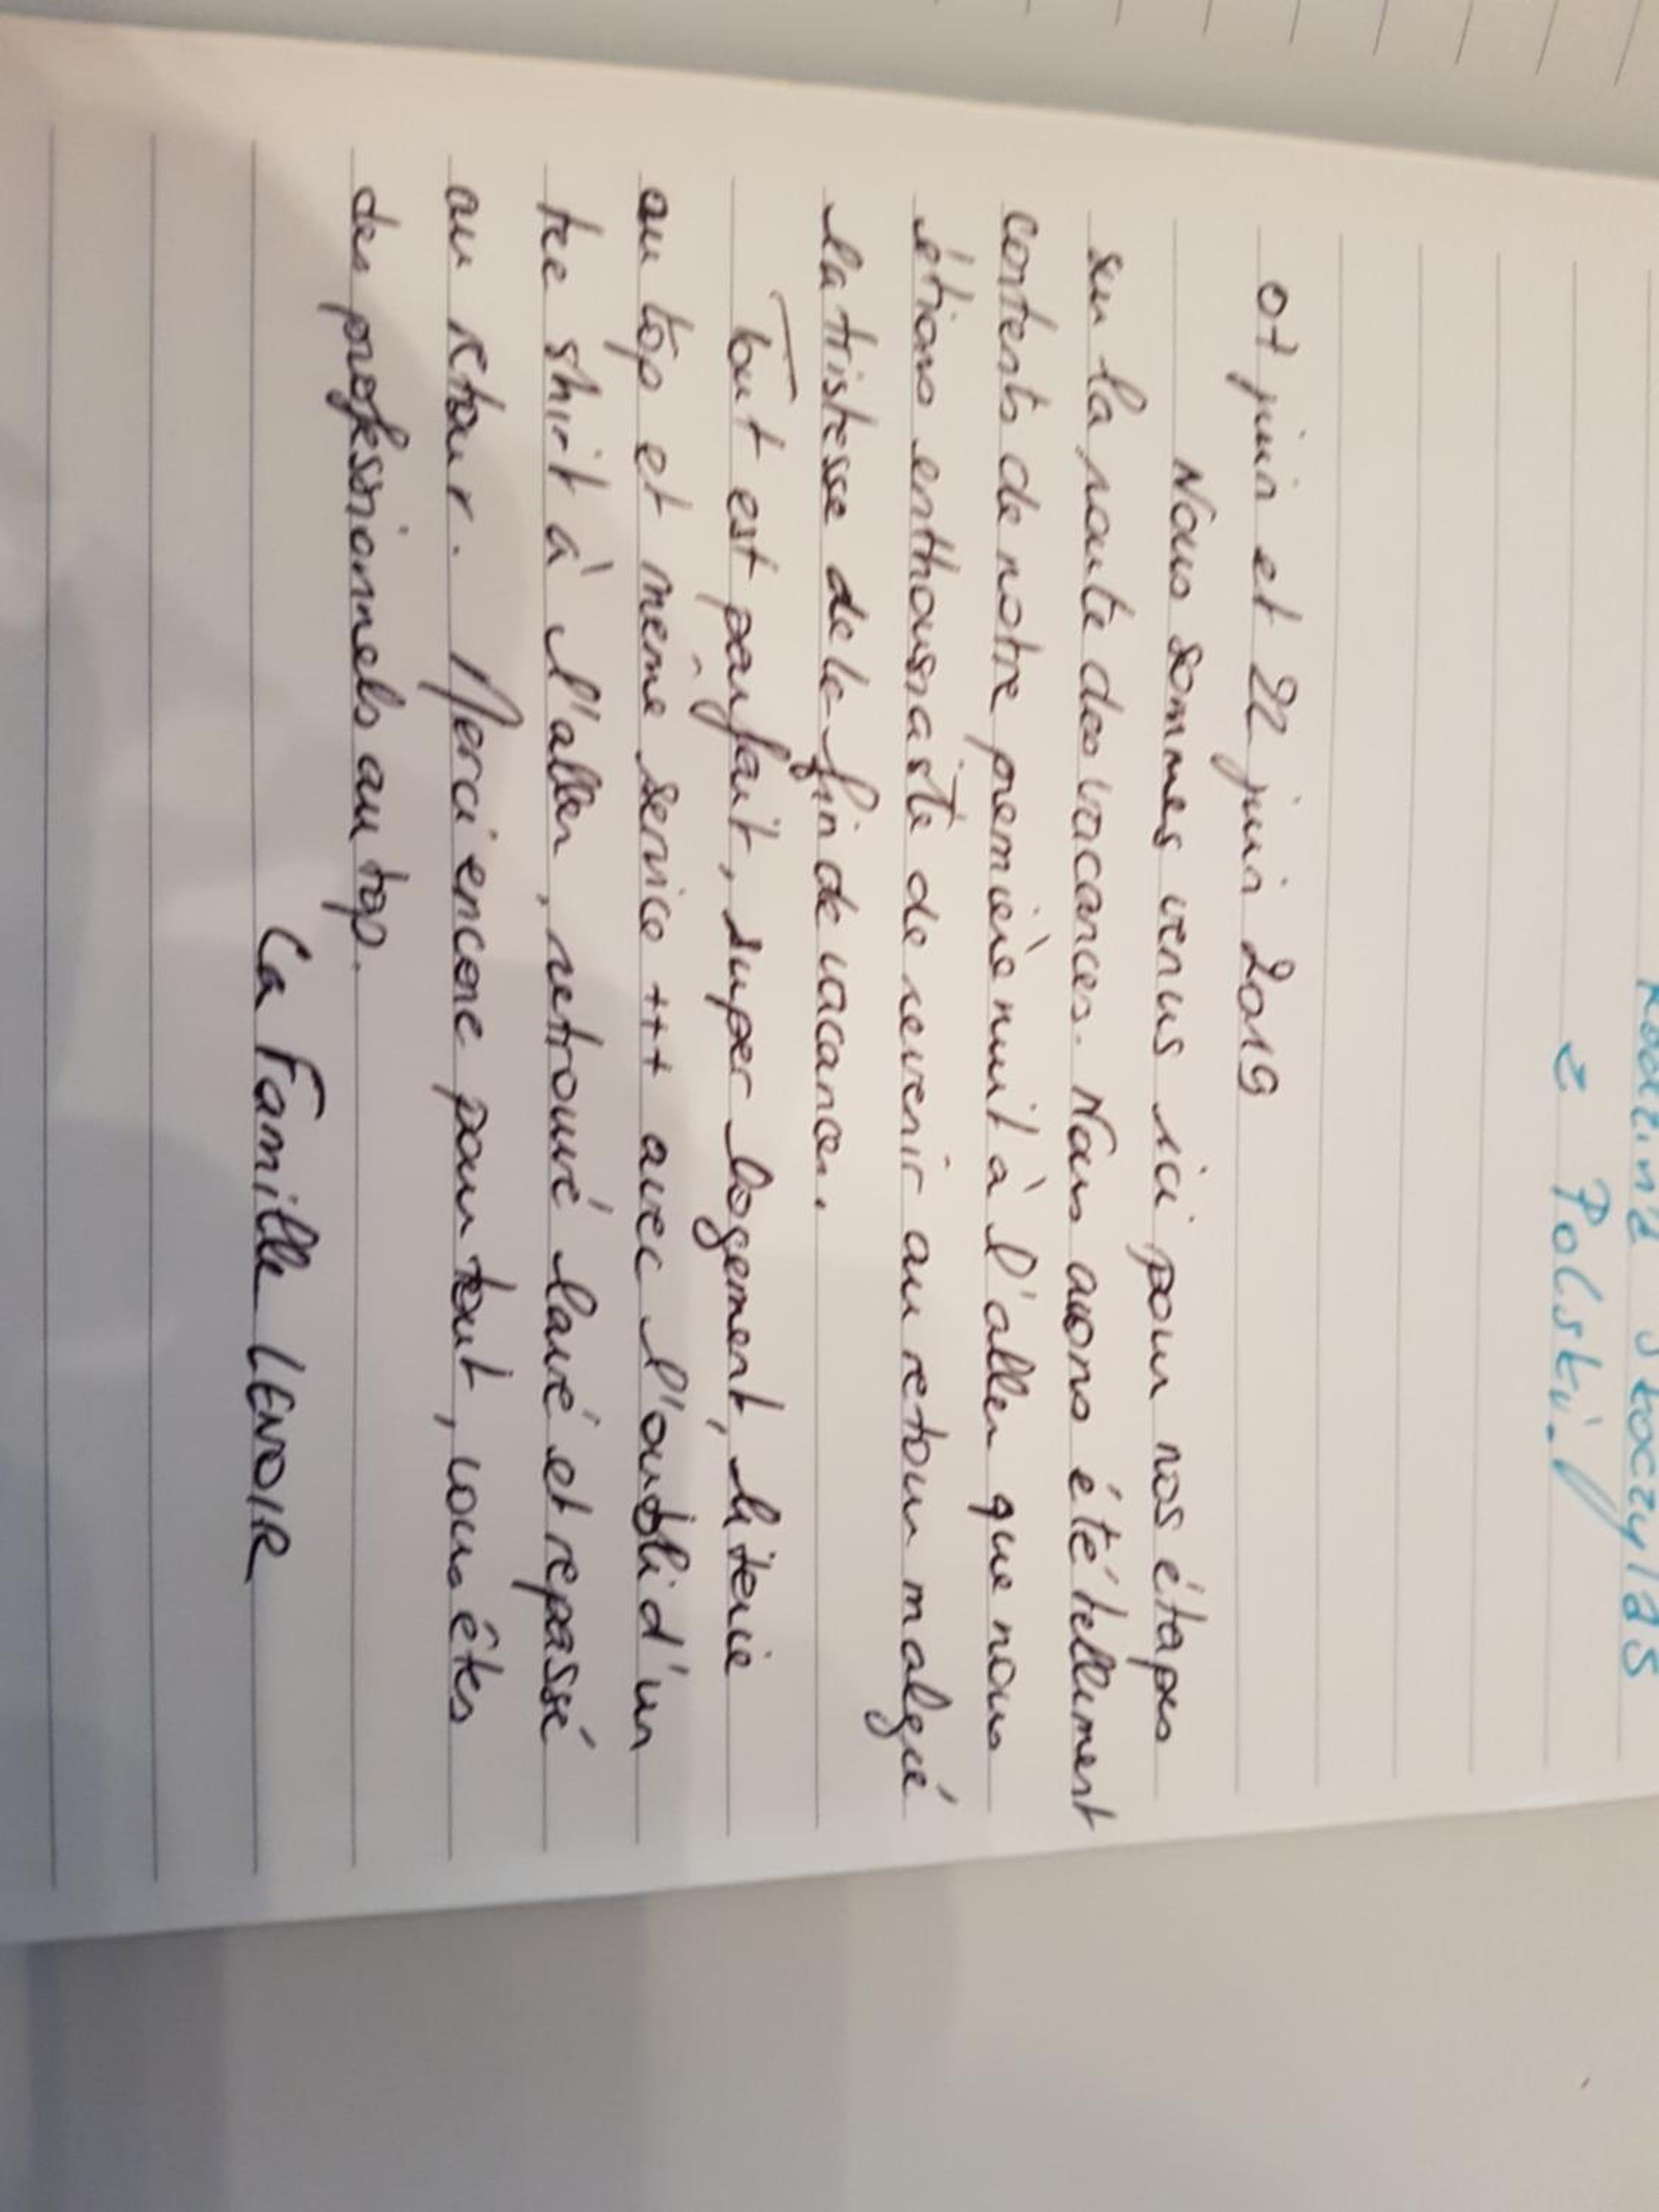 Rodzina Stoczylas
z Polski.
07 juin et 22 juin 2019
Nous sommes venus ici pour nos étapes
sur la route des vacances. Nous avons été tellement
contents de notre première nuit à l'aller que nous
étions enthousiaste de revenir au retour malgré
la tristesse de la fin de vacances.
Tout est parfait, super logement, literie
au top et même service +++ avec l'oubli d'un
tee shirt à l'aller, retrouvé lavé et repassé
au retour. Merci encore pour tout, vous êtes
des professionnels au top.
La Famille LENOIR